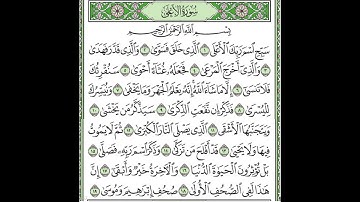 سُورَةُ الْأَعْلَىٰ
بِسْمِ اللَّهِ الرَّحْمَٰنِ الرَّحِيمِ
سَبِّحِ اسْمَ رَبِّكَ الْأَعْلَى ١ الَّذِي خَلَقَ فَسَوَّىٰ ٢ وَالَّذِي قَدَّرَ فَهَدَىٰ
٣ وَالَّذِي أَخْرَجَ الْمَرْعَىٰ ٤ فَجَعَلَهُ غُثَاءً أَحْوَىٰ ٥ سَنُقْرِئُكَ
فَلَا تَنسَىٰ ٦ إِلَّا مَا شَاءَ اللَّهُ إِنَّهُ يَعْلَمُ الْجَهْرَ وَمَا يَخْفَىٰ ٧ وَنُيَسِّرُكَ
لِلْيُسْرَىٰ ٨ فَذَكِّرْ إِن نَّفَعَتِ الذِّكْرَىٰ ٩ سَيَذَّكَّرُ مَن يَخْشَىٰ ١٠
وَيَتَجَنَّبُهَا الْأَشْقَى ١١ الَّذِي يَصْلَى النَّارَ الْكُبْرَىٰ ١٢ ثُمَّ لَا يَمُوتُ
فِيهَا وَلَا يَحْيَىٰ ١٣ قَدْ أَفْلَحَ مَن تَزَكَّىٰ ١٤ وَذَكَرَ اسْمَ رَبِّهِ فَصَلَّىٰ ١٥
بَلْ تُؤْثِرُونَ الْحَيَاةَ الدُّنْيَا ١٦ وَالْآخِرَةُ خَيْرٌ وَأَبْقَىٰ ١٧ إِنَّ
هَٰذَا لَفِي الصُّحُفِ الْأُولَىٰ ١٨ صُحُفِ إِبْرَاهِيمَ وَمُوسَىٰ ١٩